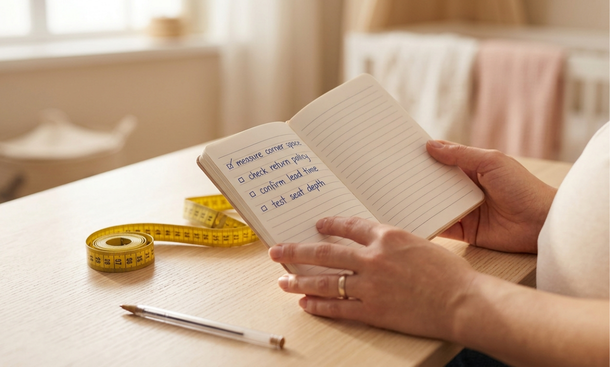 ☑ measure corner space
☐ check return policy
☐ confirm lead time
☐ test seat depth